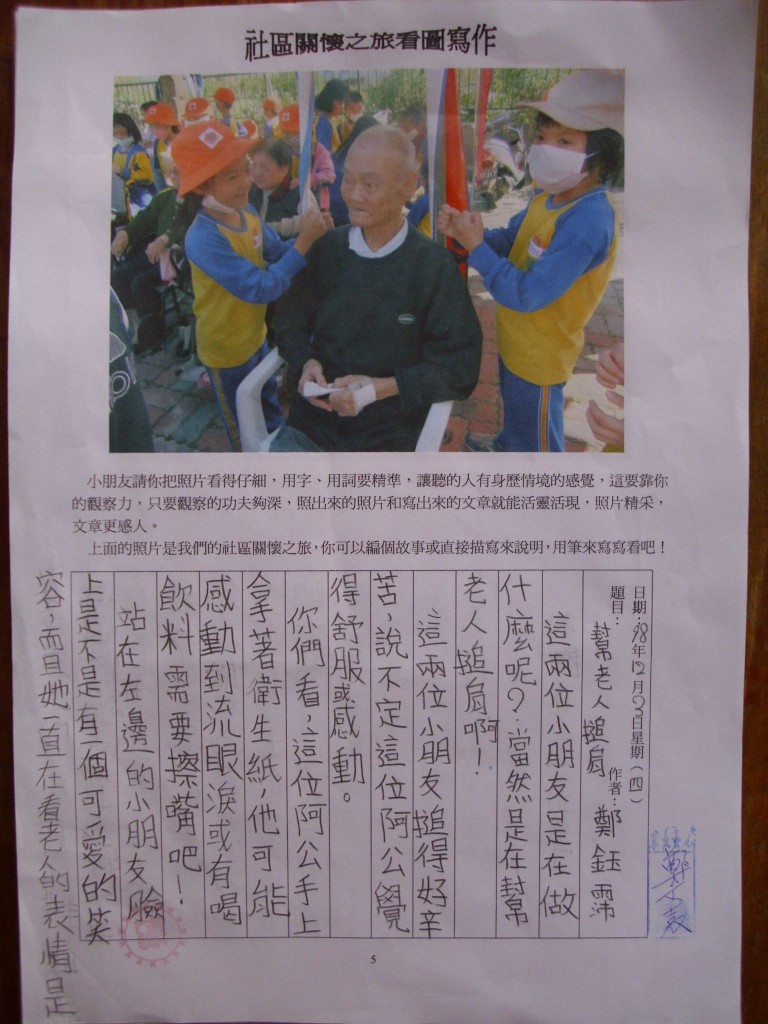 社區關懷之旅看圖寫作
小朋友請你把照片看得仔細，用字、用詞要精準，讓聽的人有身歷情境的感覺，這要靠你
的觀察力，只要觀察的功夫夠深，照出來的照片和寫出來的文章就能活靈活現，照片精采，
文章更感人。
上面的照片是我們的社區關懷之旅，你可以編個故事或直接描寫來說明，用筆來寫寫看吧！
日期：98年12月3日星期（四）
題目：幫老人搥肩 作者：鄭鈺霈
這兩位小朋友是在做
什麼呢？當然是在幫
老人搥肩啊！
這兩位小朋友搥得好辛
苦，說不定這位阿公覺
得舒服或感動。
你們看，這位阿公手上
拿著衛生紙，他可能
感動到流眼淚或有喝
飲料需要擦嘴吧！
站在左邊的小朋友臉
上是不是有一個可愛的笑
容，而且她一直在看老人的表情是
5